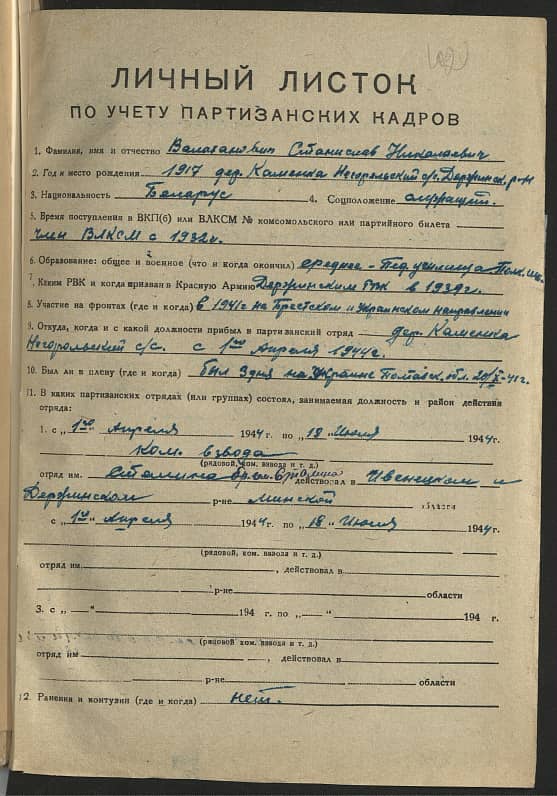 ЛИЧНЫЙ ЛИСТОК
ПО УЧЕТУ ПАРТИЗАНСКИХ КАДРОВ
1. Фамилия, имя и отчество Валаханович Станислав Николаевич
2. Год и место рождения 1917 дер. Каменка Негорельский с/с. Дзержинск. р-н
3. Национальность Беларус 4. Соцположение
5. Время поступления в ВКП(б) или ВЛКСМ № комсомольского или партийного билета
член ВЛКСМ с 1932г.
6. Образование: общее и военное (что и когда окончил) среднее - Пед училище
7. Каким РВК и когда призван в Красную Армию Дзержинским РВК в 1939г.
8. Участие на фронтах (где и когда) в 1941г на Брестском и Украинском направлении
9. Откуда, когда и с какой должности прибыл в партизанский отряд дер. Каменка
Негорельский с/с. с 1го Апреля 1944г.
10. Был ли в плену (где и когда) был 3 дня на Украине Полтавск. обл.
11. В каких партизанских отрядах (или группах) состоял, занимаемая должность и район действия
отряда:
1. с „ 1го Апреля 1944 г. по „ 18 " Июля 1944г.
Ком. взвода
(рядовой, ком. взвода и т. д.)
отряд им. Сталина бр. им. Сталина действовал в Ивенецком и
Дзержинском р-не Минской области
с „ 1го " Апреля 1944 г. по „ 18 " Июля 1944г.
(рядовой, ком. взвода и т. д.)
отряд им. , действовал в
р-не области
3. с „ — " 194 г. по „ — " 194 г.
(рядовой ком. взвода и т. д.)
отряд им , действовал в
р-не области
12. Ранения и контузии (где и когда) нет.